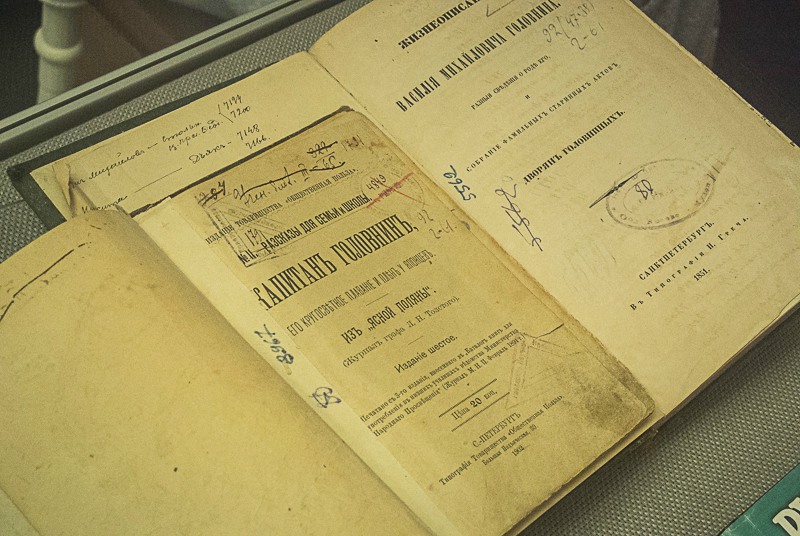 ЖИЗНЕОПИСАН
ВАСИЛІЯ МИХАЙЛОВИЧА ГОЛОВНИНА,
92(47.31)
2-61
РАЗНЫЯ СВѢДѢНІЯ О РОДѢ ЕГО,
И
СОБРАНІЕ ФАМИЛЬНЫХЪ СТАРИННЫХЪ АКТОВЪ
ДВОРЯНЪ ГОЛОВНИНЫХЪ.
5562
САНКТПЕТЕРБУРГЪ.
ВЪ ТИПОГРАФІИ Н. ГРЕЧА.
1851.
7199
7200
Дьякъ - 7148
ИЗДАНІЕ ТОВАРИЩЕСТВА «ОБЩЕСТВЕННАЯ ПОЛЬЗА»
№ 11. РАЗСКАЗЫ ДЛЯ СЕМЬИ И ШКОЛЫ
КАПИТАНЪ ГОЛОВНИНЪ,
92
2-61
ЕГО КРУГОСВѢТНОЕ ПЛАВАНІЕ И ПЛѢНЪ У ЯПОНЦЕВЪ
ИЗЪ „ЯСНОЙ ПОЛЯНЫ".
(Журналъ графа Л. Н. Толстого).
Изданіе шестое.
Печатано съ 3-го изданія, внесеннаго въ Каталогъ книгъ для
употребленія въ низшихъ училищахъ вѣдомства Министерства
Народнаго Просвѣщенія (Журналъ М. Н. П. Февраль 1897 г.)
Цѣна 20 коп.
С.-ПЕТЕРБУРГЪ
Типографія Товарищества «Общественная Польза»,
Большая Подъяческая, 39
1902